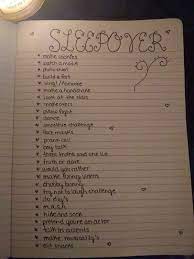 SLEEPOVER
* make cookies
* watch a movie
* photo shoot
* build a fort
* sing / karaoke
* make a handshake
* look at the stars
* makeovers
* pillow fight
* dance
* smoothie challenge
* face masks
* prank call
* boy talk
* two truths and one lie
* truth or dare
* would you rather
* make funny videos
* chubby bunny
* try not to laugh challenge
* do diy's
* m.a.s.h
* hide and seek
* pretend you're an actor
* talk in accents
* make musical.ly's
* eat snacks